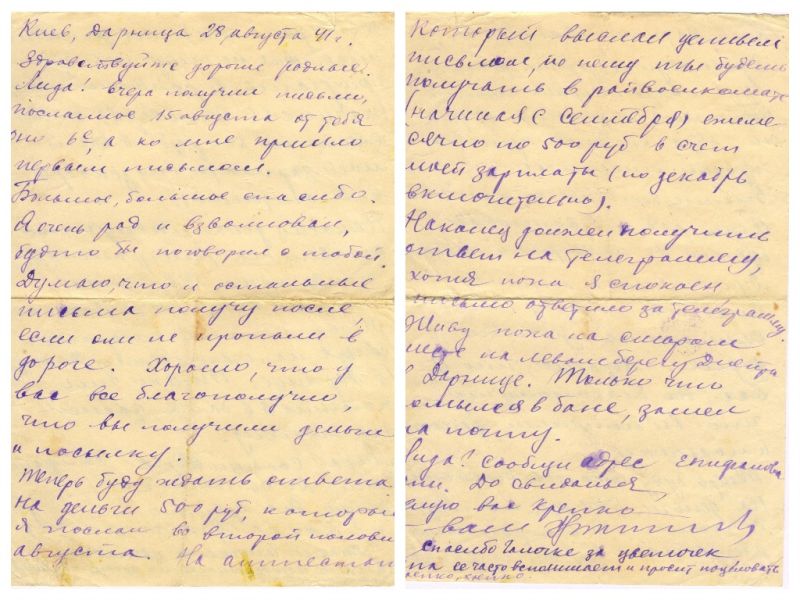 Киев, Дарница 28, августа 41 г.
Здравствуйте дорогие родные.
Лида! Вчера получил письмо,
посланное 15 августа от тебя
оно 6е, а ко мне пришло
первым письмом.
Большое, большое спасибо.
Я очень рад и взволнован,
будто бы поговорил с тобой.
Думаю, что и остальные
письма получу после,
если они не пропали в
дороге. Хорошо, что у
вас все благополучно,
что вы получили деньги
и посылку.
Теперь буду ждать ответа
на деньги 500 руб, которые
я послал во второй полови
августа. На аттестат
который выслал ценным
письмом, по нему ты будешь
получать в райвоенкомате
начиная (с сентября) ежеме
сячно по 500 руб в счет
моей зарплаты (по декабрь
включительно).
Наконец должен получить
ответ на телеграмму,
хотя пока я спокоен
письмо ответило за телеграмму.
Живу пока на старом
месте на левом берегу Днепра
в Дарнице. Только что
омылся в бане, зашел
на почту.
Лида! Сообщи адрес
ми. До свиданья,
елую вас крепко
— ваш
спасибо Галочке за цветочек
па се часто вспоминаем и просит поцеловать
репко, крепко.